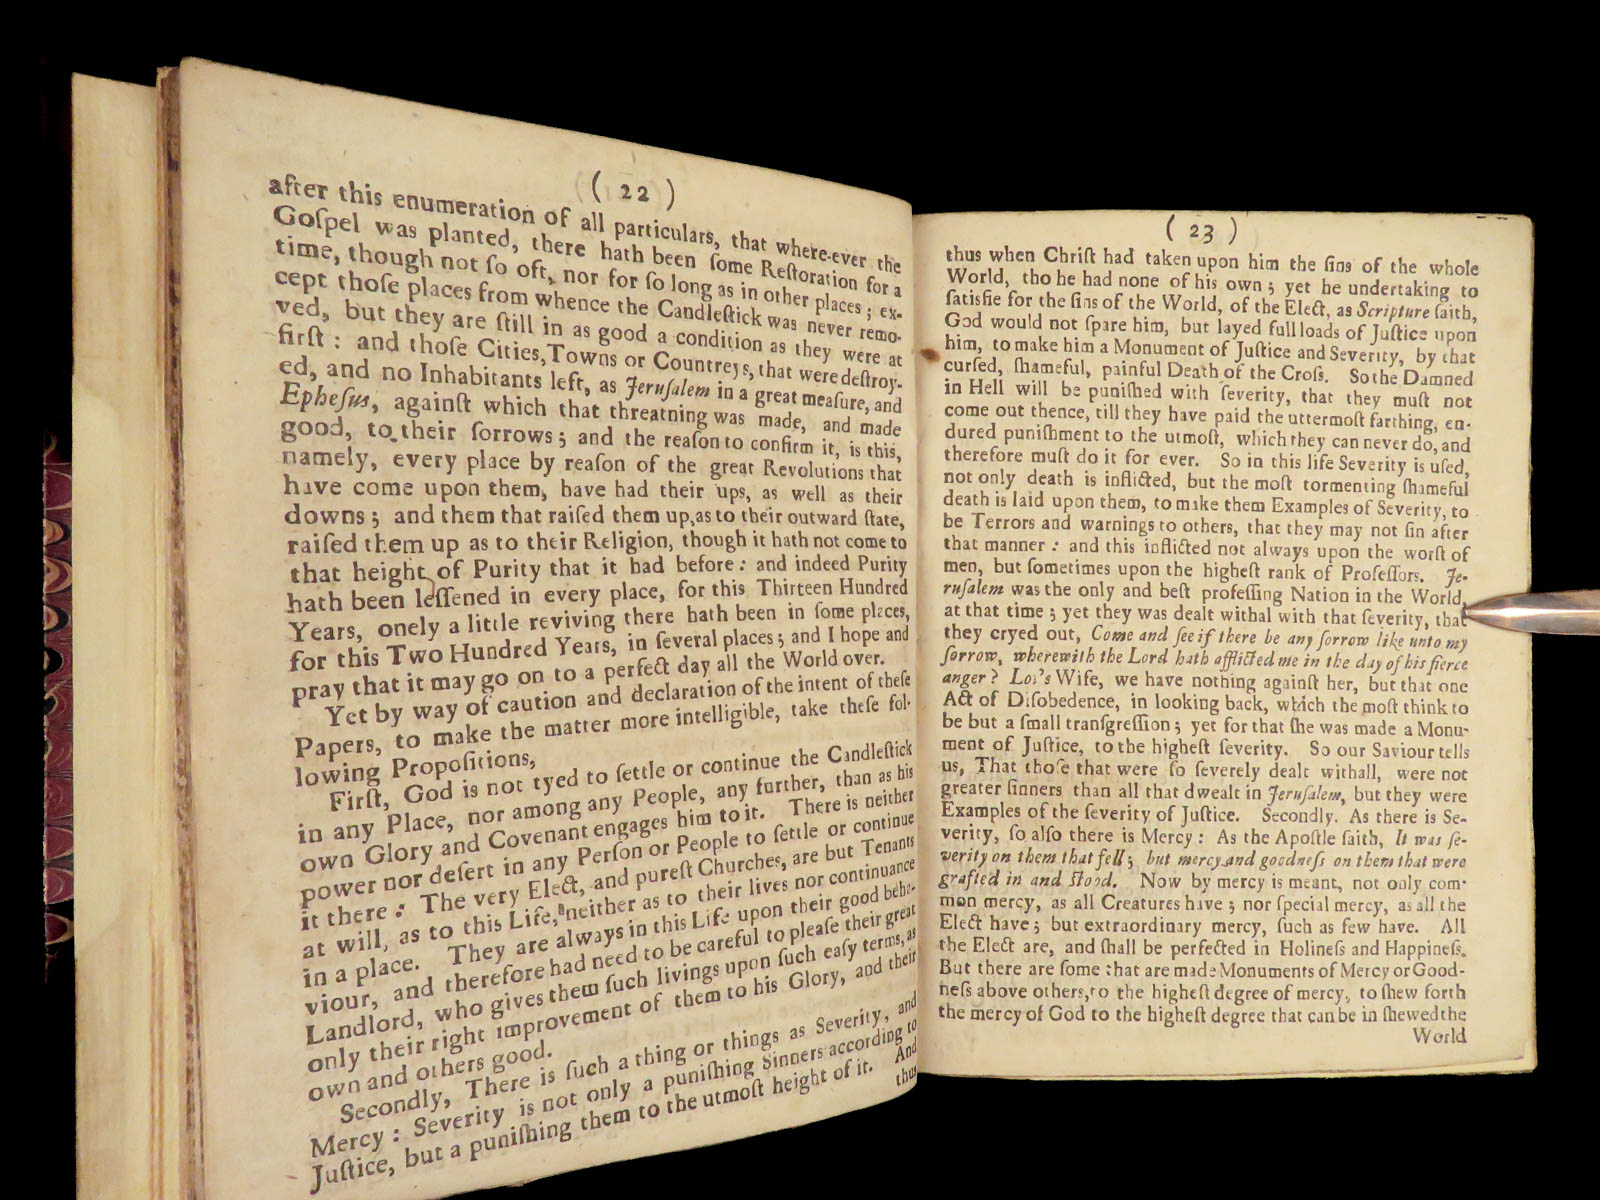 ( 22 )
after this enumeration of all particulars, that where-ever the
Goſpel was planted, there hath been ſome Reſtoration for a
time, though not ſo oft, nor for ſo long as in other places ; ex-
cept thoſe places from whence the Candleſtick was never remo-
ved, but they are ſtill in as good a condition as they were at
firſt : and thoſe Cities, Towns or Countreys, that were deſtroy-
ed, and no Inhabitants left, as Jeruſalem in a great meaſure, and
Epheſus, againſt which that threatning was made, and made
good, to their ſorrows ; and the reaſon to confirm it, is this,
namely, every place by reaſon of the great Revolutions that
have come upon them, have had their ups, as well as their
downs ; and them that raiſed them up, as to their outward ſtate,
raiſed them up as to their Religion, though it hath not come to
that height of Purity that it had before : and indeed Purity
hath been leſſened in every place, for this Thirteen Hundred
Years, onely a little reviving there hath been in ſome places,
for this Two Hundred Years, in ſeveral places ; and I hope and
pray that it may go on to a perfect day all the World over.
Yet by way of caution and declaration of the intent of theſe
Papers, to make the matter more intelligible, take theſe fol-
lowing Propoſitions,
Firſt, God is not tyed to ſettle or continue the Candleſtick
in any Place, nor among any People, any further, than as his
own Glory and Covenant engages him to it. There is neither
power nor deſert in any Perſon or People to ſettle or continue
it there : The very Elect, and pureſt Churches, are but Tenants
at will, as to this Life, neither as to their lives nor continuance
in a place. They are always in this Life upon their good beha-
viour, and therefore had need to be careful to pleaſe their great
Landlord, who gives them ſuch livings upon ſuch eaſy terms, as
only their right improvement of them to his Glory, and their
own and others good.
Secondly, There is ſuch a thing or things as Severity, and
Mercy : Severity is not only a puniſhing Sinners according to
Juſtice, but a puniſhing them to the utmoſt height of it. And
thus
( 23 )
thus when Chriſt had taken upon him the ſins of the whole
World, tho he had none of his own ; yet he undertaking to
ſatisfie for the ſins of the World, of the Elect, as Scripture ſaith,
God would not ſpare him, but layed full loads of Juſtice upon
him, to make him a Monument of Juſtice and Severity, by that
curſed, ſhameful, painful Death of the Croſs. So the Damned
in Hell will be puniſhed with ſeverity, that they muſt not
come out thence, till they have paid the uttermoſt farthing, en-
dured puniſhment to the utmoſt, which they can never do, and
therefore muſt do it for ever. So in this life Severity is uſed,
not only death is inflicted, but the moſt tormenting ſhameful
death is laid upon them, to make them Examples of Severity, to
be Terrors and warnings to others, that they may not ſin after
that manner : and this inflicted not always upon the worſt of
men, but ſometimes upon the higheſt rank of Profeſſors. Je-
ruſalem was the only and beſt profeſſing Nation in the World,
at that time ; yet they was dealt withal with that ſeverity, that
they cryed out, Come and ſee if there be any ſorrow like unto my
ſorrow, wherewith the Lord hath afflicted me in the day of his fierce
anger ? Lot's Wife, we have nothing againſt her, but that one
Act of Diſobedence, in looking back, which the moſt think to
be but a ſmall tranſgreſſion ; yet for that ſhe was made a Monu-
ment of Juſtice, to the higheſt ſeverity. So our Saviour tells
us, That thoſe that were ſo ſeverely dealt withall, were not
greater ſinners than all that dwealt in Jeruſalem, but they were
Examples of the ſeverity of Juſtice. Secondly. As there is Se-
verity, ſo alſo there is Mercy : As the Apoſtle ſaith, It was ſe-
verity on them that fell ; but mercy and goodneſs on them that were
grafted in and ſtood. Now by mercy is meant, not only com-
mon mercy, as all Creatures have ; nor ſpecial mercy, as all the
Elect have ; but extraordinary mercy, ſuch as few have. All
the Elect are, and ſhall be perfected in Holineſs and Happineſs.
But there are ſome that are made Monuments of Mercy or Good-
neſs above others, to the higheſt degree of mercy, to ſhew forth
the mercy of God to the higheſt degree that can be in ſhewed the
World